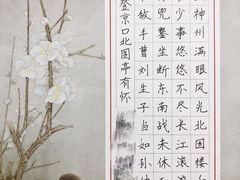 神州满眼风光北固楼
少事悠悠不尽长江滚
兜鍪坐断东南战未休
敌手曹刘生子当如孙仲
登京口北固亭有怀